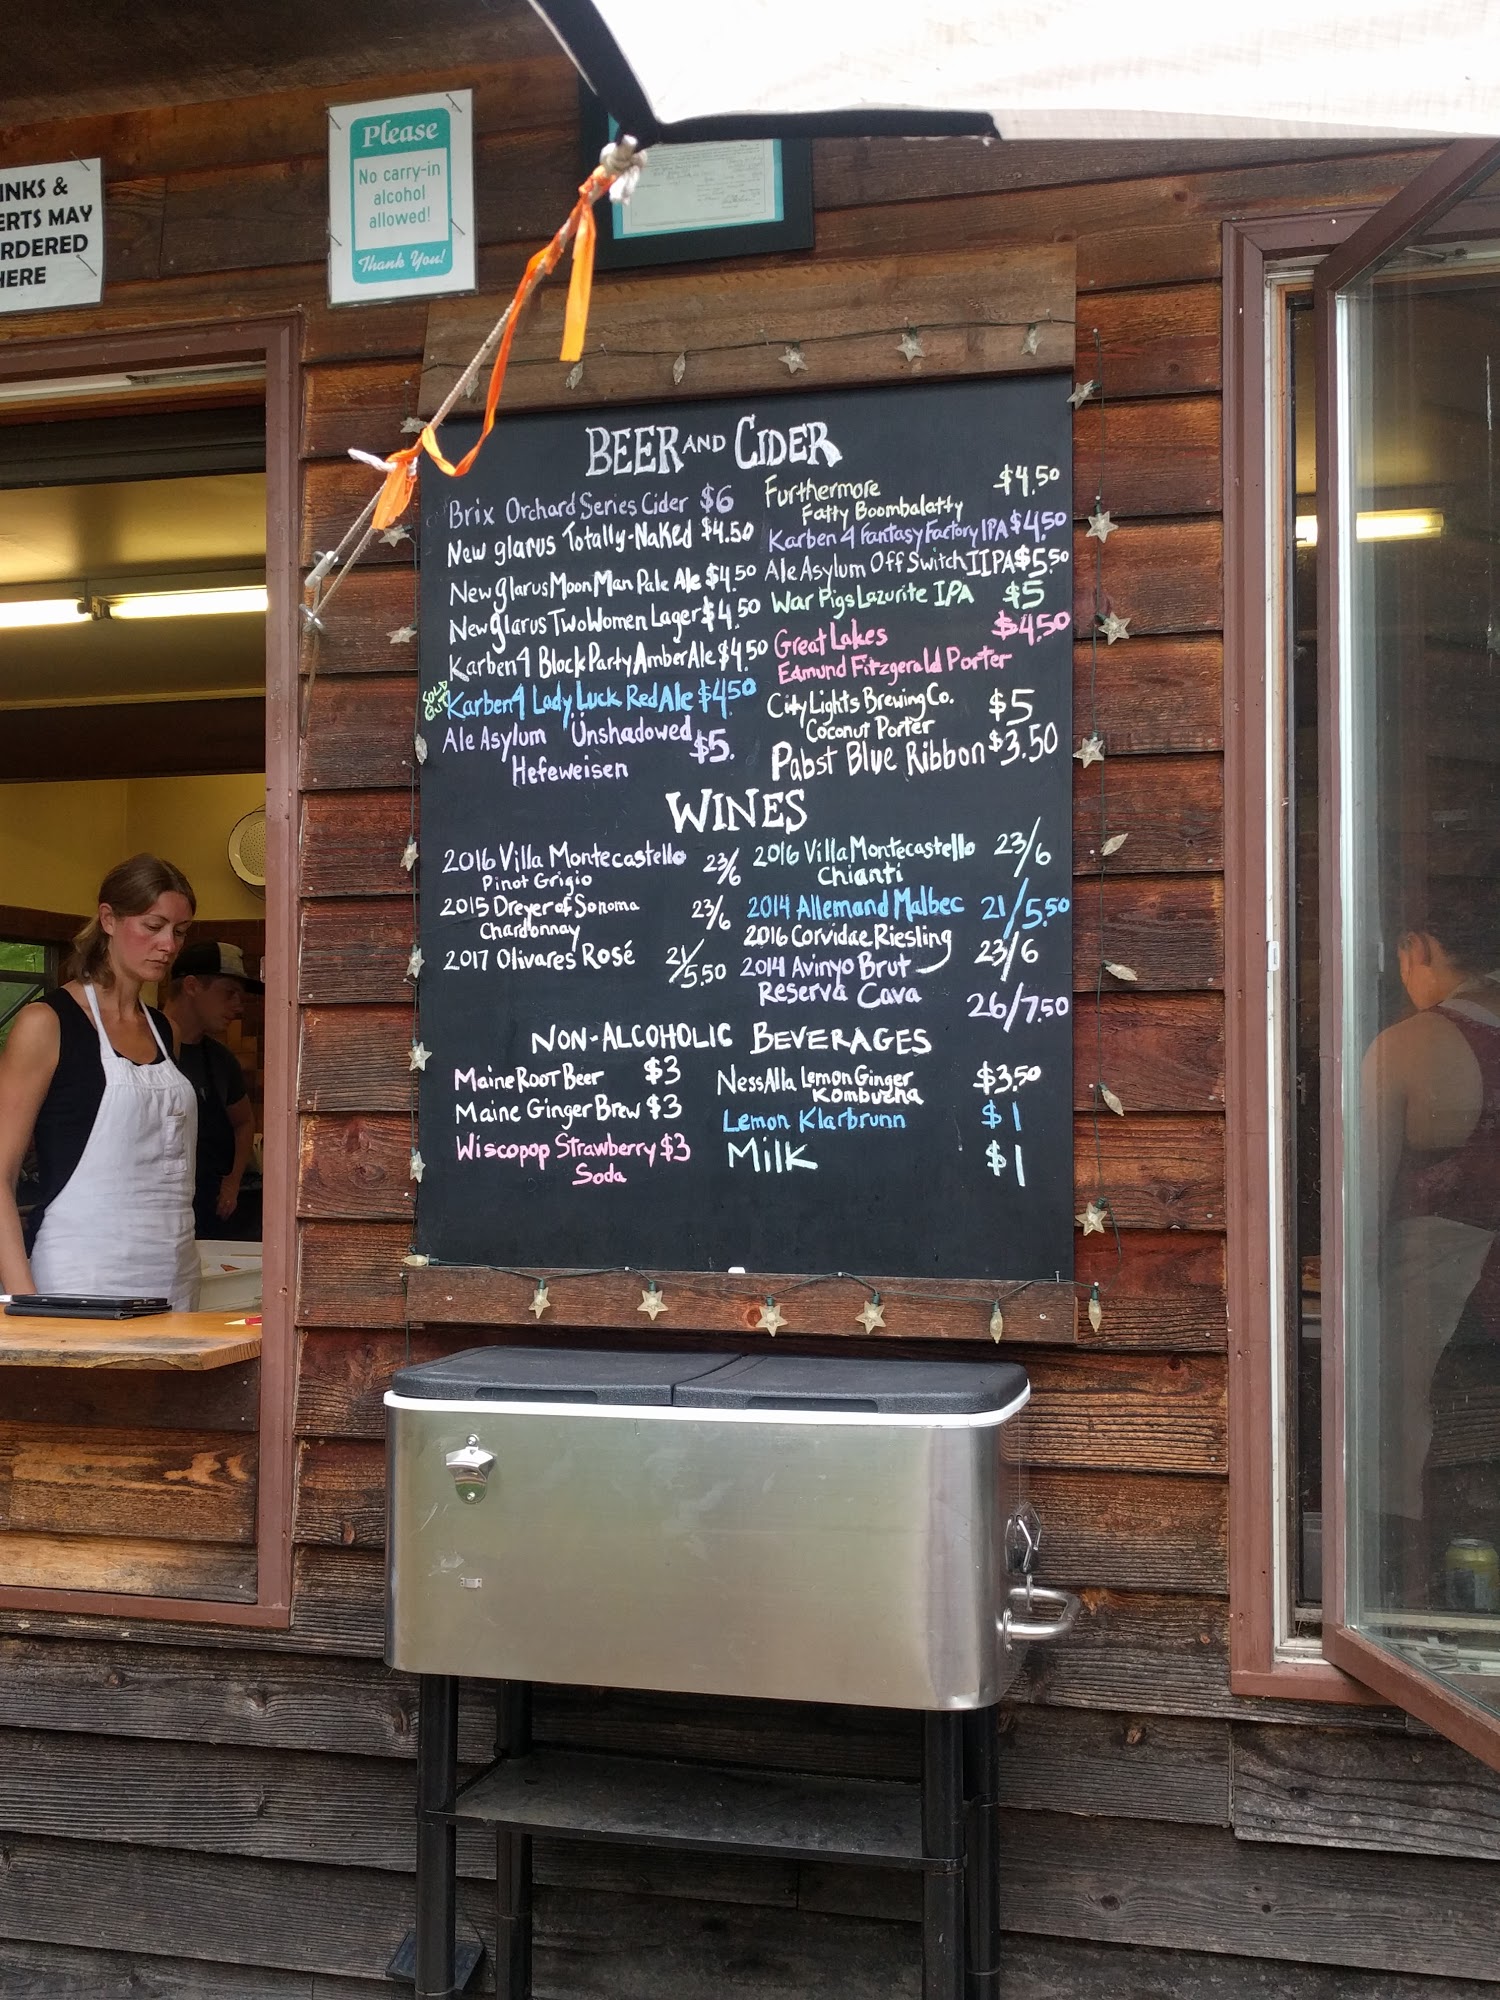 INKS &
ERTS MAY
RDERED
HERE
Please
No carry-in
alcohol
allowed!
Thank You!
BEER AND CIDER
Brix Orchard Series Cider $6
New glarus Totally-Naked $4.50
New glarus Moon Man Pale Ale $4.50
New glarus Two Women Lager $4.50
Karben4 Block Party Amber Ale $4.50
SOLD
OUT
Karben4 Lady Luck Red Ale $4.50
Ale Asylum Unshadowed $5.
Hefeweisen
Furthermore $4.50
Fatty Boombalatty
Karben 4 Fantasy Factory IPA $4.50
Ale Asylum Off Switch IIPA $5.50
War Pigs Lazurite IPA $5
Great Lakes $4.50
Edmund Fitzgerald Porter
City Lights Brewing Co. $5
Coconut Porter
Pabst Blue Ribbon $3.50
WINES
2016 Villa Montecastello 23/6
Pinot Grigio
2015 Dreyer of Sonoma 23/6
Chardonnay
2017 Olivares Rosé 21/5.50
2016 Villa Montecastello 23/6
Chianti
2014 Allemand Malbec 21/5.50
2016 Corvidae Riesling 23/6
2014 Avinyo Brut
Reserva Cava 26/7.50
NON-ALCOHOLIC BEVERAGES
Maine Root Beer $3
Maine Ginger Brew $3
Wiscopop Strawberry $3
Soda
NessAlla Lemon Ginger $3.50
Kombucha
Lemon Klarbrunn $1
Milk $1